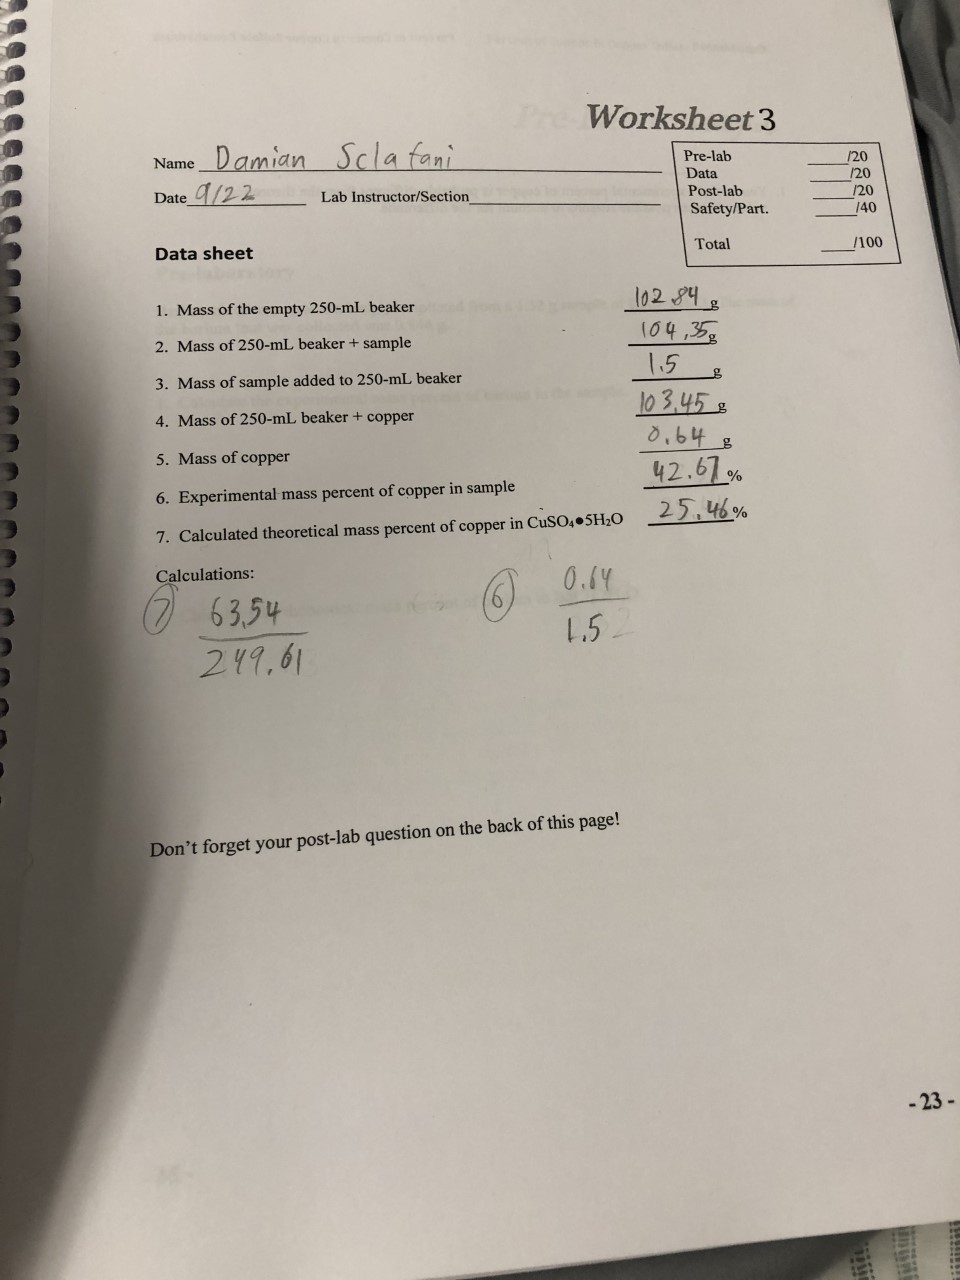 Worksheet 3
Name Damian Sclafani
Date 9/22 Lab Instructor/Section
Pre-lab /20
Data /20
Post-lab /20
Safety/Part. /40
Total /100
Data sheet
1. Mass of the empty 250-mL beaker 102.84 g
2. Mass of 250-mL beaker + sample 104,35 g
3. Mass of sample added to 250-mL beaker 1.5 g
4. Mass of 250-mL beaker + copper 103,45 g
5. Mass of copper 0.64 g
6. Experimental mass percent of copper in sample 42.67 %
7. Calculated theoretical mass percent of copper in CuSO₄●5H₂O 25.46 %
Calculations:
7 63,54
249.61
6 0.64
1.5
Don't forget your post-lab question on the back of this page!
- 23 -